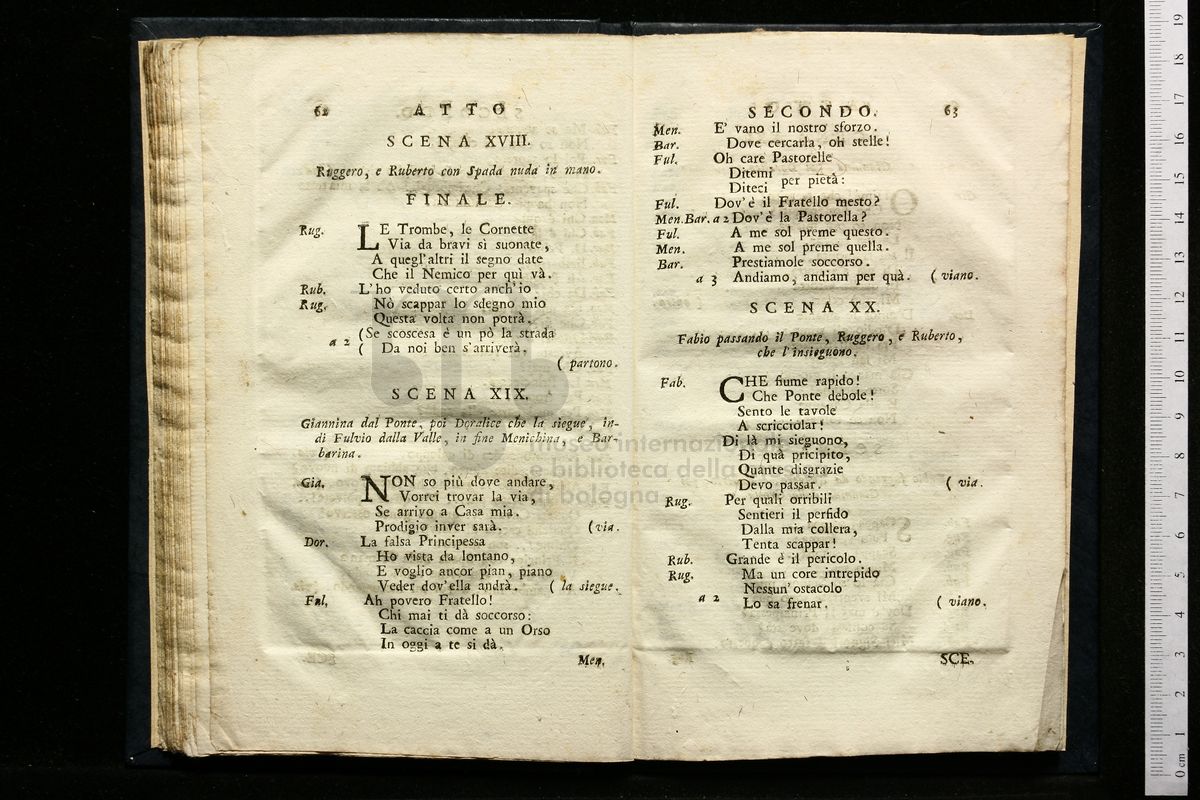 62 ATTO
SCENA XVIII.
Ruggero, e Ruberto con Spada nuda in mano.
FINALE.
Rug. LE Trombe, le Cornette
Via da bravi sì suonate,
A quegl'altri il segno date
Che il Nemico per quì và.
Rub. L'ho veduto certo anch'io
Rug. Nò scappar lo sdegno mio
Questa volta non potrà.
a 2 (Se scoscesa è un pò la strada
( Da noi ben s'arriverà.
( partono.
SCENA XIX.
Giannina dal Ponte, poi Doralice che la siegue, in-
di Fulvio dalla Valle, in fine Menichina, e Bar-
barina.
Gia. NON so più dove andare,
Vorrei trovar la via,
Se arrivo a Casa mia.
Prodigio inver sarà. (via.
Dor. La falsa Principessa
Ho vista da lontano,
E voglio ancor pian, piano
Veder dov'ella andrà. ( la siegue.
Ful. Ah povero Fratello!
Chi mai ti dà soccorso:
La caccia come a un Orso
In oggi a te si dà.
Men.
SECONDO. 63
Men. E' vano il nostro sforzo.
Bar. Dove cercarla, oh stelle!
Ful. Oh care Pastorelle
Ditemi
Diteci per pietà:
Ful. Dov'è il Fratello mesto?
Men.Bar. a 2 Dov'è la Pastorella?
Ful. A me sol preme questo.
Men. A me sol preme quella.
Bar. Prestiamole soccorso.
a 3 Andiamo, andiam per quà. ( viano.
SCENA XX.
Fabio passando il Ponte, Ruggero, e Ruberto,
che l'insieguono.
Fab. CHE fiume rapido!
Che Ponte debole!
Sento le tavole
A scricciolar!
Di là mi sieguono,
Di quà pricipito,
Quante disgrazie
Devo passar. ( via.
Rug. Per quali orribili
Sentieri il perfido
Dalla mia collera,
Tenta scappar!
Rub. Grande è il pericolo.
Rug. Ma un core intrepido
Nessun' ostacolo
a 2 Lo sa frenar. ( viano.
SCE.
museo internazi
e biblioteca della
di bologna
0 cm 1 2 3 4 5 6 7 8 9 10 11 12 13 14 15 16 17 18 19